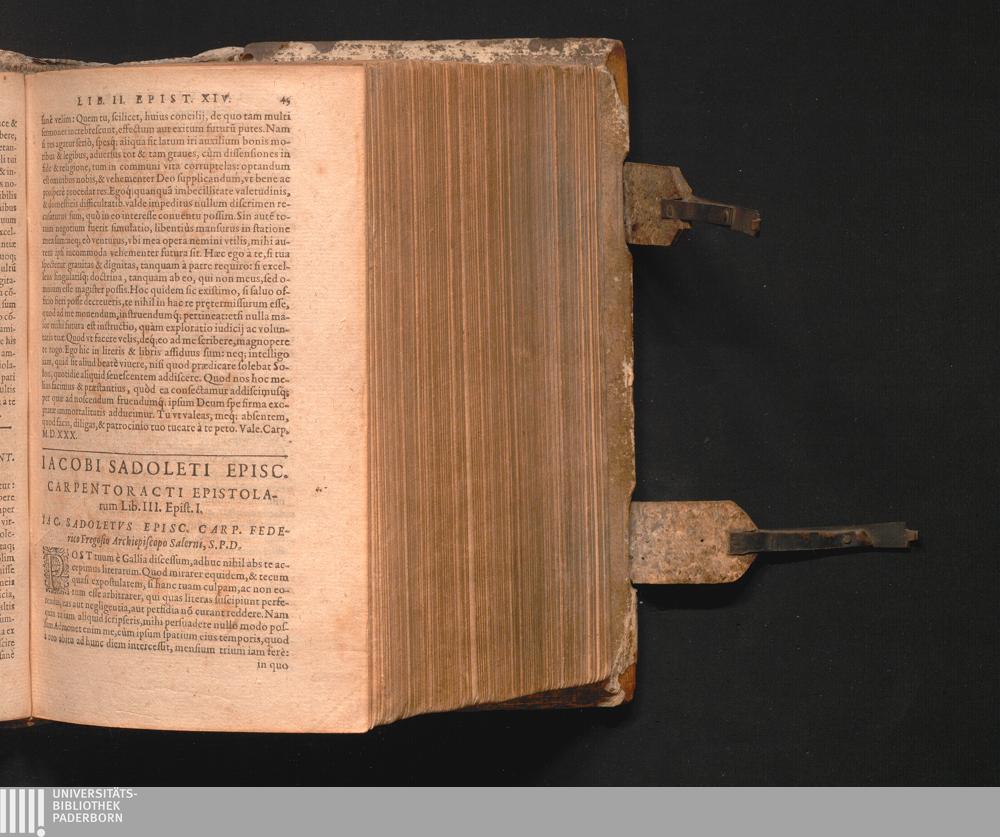 LIB. II. EPIST. XIV. 45
sanè velim: Quem tu, scilicet, huius concilij, de quo tam multi
sermones increbrescunt, effectum aut exitum futurū putes. Nam
si res agatur seriò, spesq; aliqua sit latum iri auxilium bonis mo-
ribus & legibus, aduersus tot & tam graues, cùm dissensiones in
fide & religione, tum in communi vita corruptelas: optandum
est omnibus nobis, & vehementer Deo supplicandum, vt bene ac
prosperè procedat res. Egoq; quanquā imbecillitate valetudinis,
& domesticis difficultatib. valde impeditus nullum discrimen re-
cusaturus sum, quò in eo interesse conuentu possim. Sin autē to-
tum negotium fuerit simulatio, libentiùs mansurus in statione
mea sum: neq; eò venturus, vbi mea opera nemini vtilis, mihi au-
tem ipsi incommoda vehementer futura sit. Hæc ego à te, si tua
spectetur grauitas & dignitas, tanquam à patre requiro: si excel-
lens singularisq; doctrina, tanquam ab eo, qui non meus, sed o-
mnium esse magister possis. Hoc quidem sic existimo, si saluo of-
ficio fieri posse decreueris, te nihil in hac re prętermissurum esse,
quod ad me monendum, instruendumq́; pertineat: etsi nulla ma-
ior mihi futura est instructio, quàm exploratio iudicij ac volun-
tatis tuæ. Quod vt facere velis, deq; eo ad me scribere, magnopere
te rogo. Ego hîc in literis & libris assiduus sum: neq; intelligo
iam, quid sit aliud beatè viuere, nisi quod prædicare solebat So-
lon, quotidie aliquid senescentem addiscere. Quod nos hoc me-
liùs facimus & præstantius, quòd ea consectamur addiscimusq́;
per quæ ad noscendum fruendumq́; ipsum Deum spe firma exo-
ptatæ immortalitatis adducimur. Tu vt valeas, meq; absentem,
quod facis, diligas, & patrocinio tuo tueare à te peto. Vale. Carp.
M.D.XXX.
IACOBI SADOLETI EPISC.
CARPENTORACTI EPISTOLA-
rum Lib. III. Epist. I.
IAC. SADOLETVS EPISC. CARP. FEDE-
rico Fregosio Archiepiscopo Salerni, S.P.D.
POST tuum è Gallia discessum, adhuc nihil abs te ac-
cepimus literarum. Quod mirarer equidem, & tecum
quasi expostularem, si hanc tuam culpam, ac non eo-
rum esse arbitrarer, qui quas literas suscipiunt perfe-
rendas, eas aut negligentia, aut perfidia nō curant reddere. Nam
quin tu iam aliquid scripseris, mihi persuadere nullo modo pos-
sum. Admonet enim me, cùm ipsum spatium eius temporis, quod
à tuo abitu ad hunc diem intercessit, mensium trium iam ferè:
in quo
UNIVERSITÄTS-
BIBLIOTHEK
PADERBORN